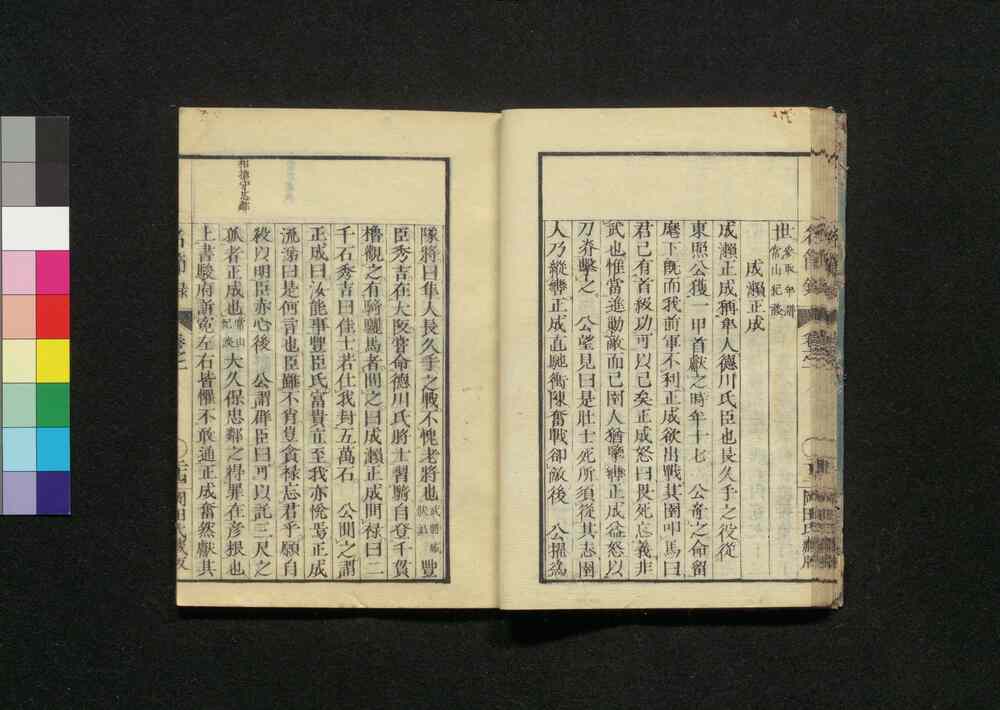 世 参取年譜 常山紀談
成瀬正成
成瀬正成稱隼人德川氏臣也長久手之役從
東照公獲一甲首獻之時年十七 公奇之命留
麾下既而我前軍不利正成欲出戰其圉叩馬曰
君已有首級功可以已矣正成怒曰畏死忘義非
武也惟當進動敵而已圉人猶擥轡正成益怒以
刀脊擊之 公望見曰是壯士死所須從其志圉
人乃縱轡正成直馳衝陳奮戰卻敵後 公擢爲
隊將曰隼人長久手之戰不愧老將也 豐
臣秀吉在大阪嘗命德川氏將士習騎自登千貫
櫓觀之有騎驪馬者問之曰成瀬正成問祿曰二
千石秀吉曰佳士若仕我封五萬石 公聞之謂
正成曰汝能事豐臣氏富貴立至我亦悅焉正成
流涕曰是何言也臣雖不肖隻貪祿忘君乎願自
殺以明臣亦心後 公謂群臣曰可以託三尺之
孤者正成也 常山紀談 大久保忠鄰之得罪在彦根也
上書駿府訴寃左右皆憚不敢通正成奮然獻其
相模守忠鄰
名節録 卷之二
岡田氏藏版